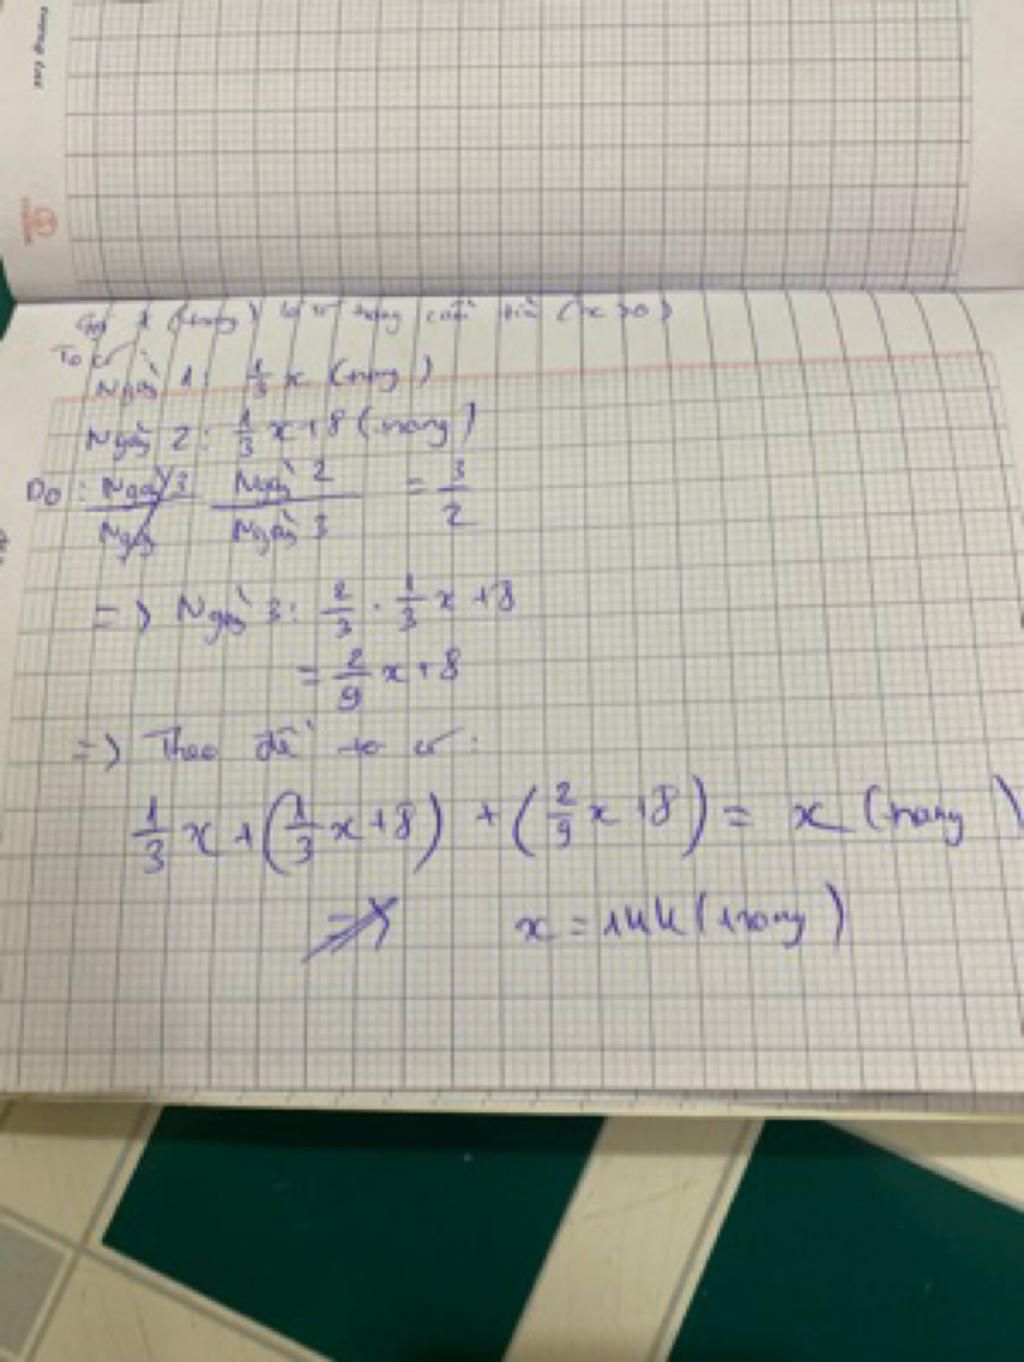 Gọi x (trang) là số trang cuốn sách (x > 0)
Ta có:
Ngày 1: 1/3 x (trang)
Ngày 2: 1/3 x + 8 (trang)
Do: Ngày 3 / Ngày Ngày 2 / Ngày 3 = 3/2
=> Ngày 3: 2/3 . 1/3 x + 8
= 2/9 x + 8
=> Theo đề ta có:
1/3 x + (1/3 x + 8) + (2/9 x + 8) = x (trang)
=> x = 144 (trang)